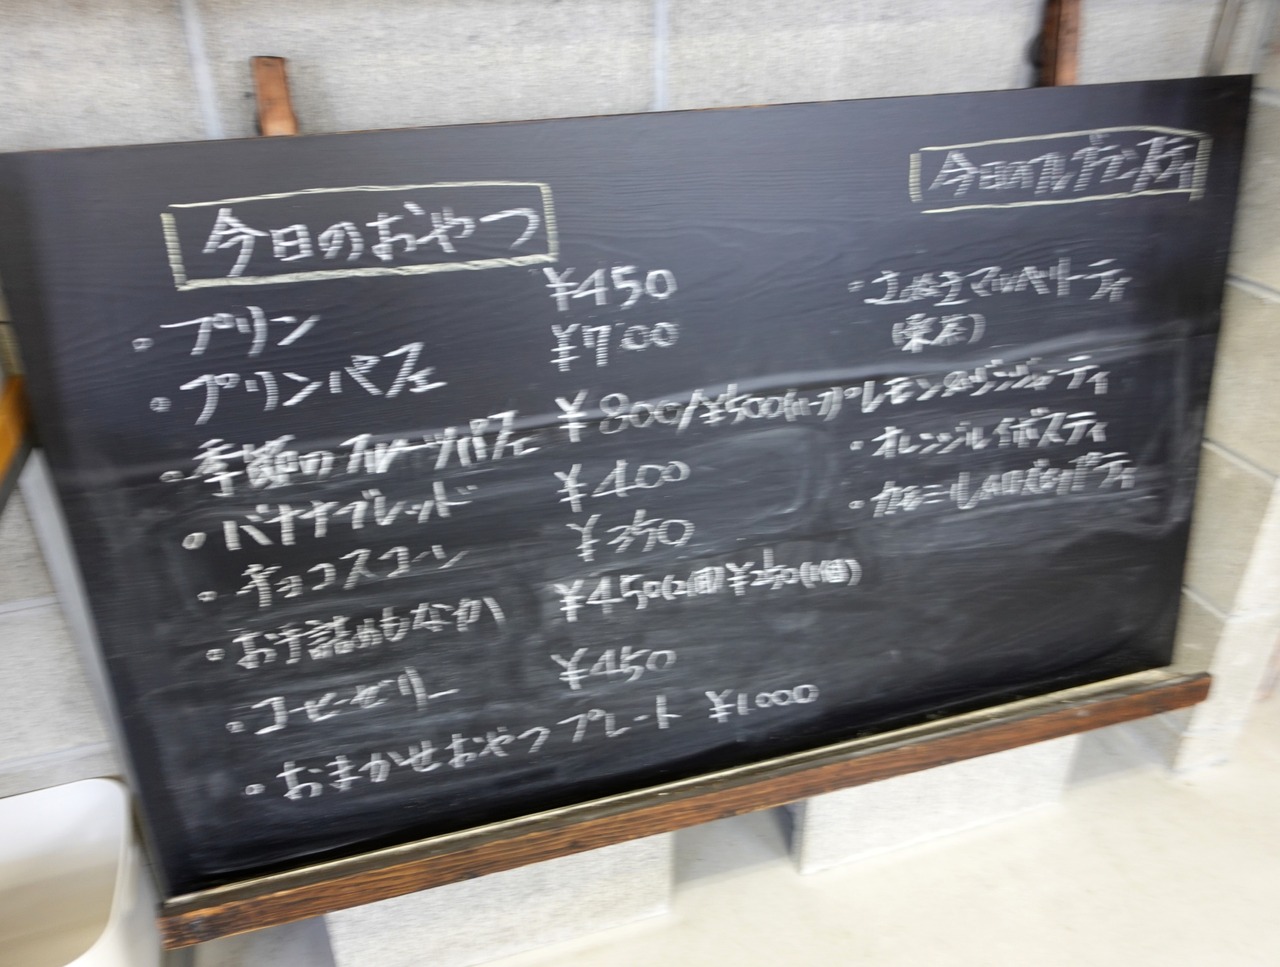 今日のおやつ
・プリン ¥450
・プリンパフェ ¥700
・季節のフルーツパフェ ¥800/¥500(ハーフ)
・バナナブレッド ¥400
・チョコスコーン ¥350
・お手詰めもなか ¥450(2個)¥250(1個)
・コーヒーゼリー ¥450
・おまかせおやつプレート ¥1.000
今日のブレンドティ
マルベリーティ
・レモン&ジンジャーティ
・オレンジルイボスティ